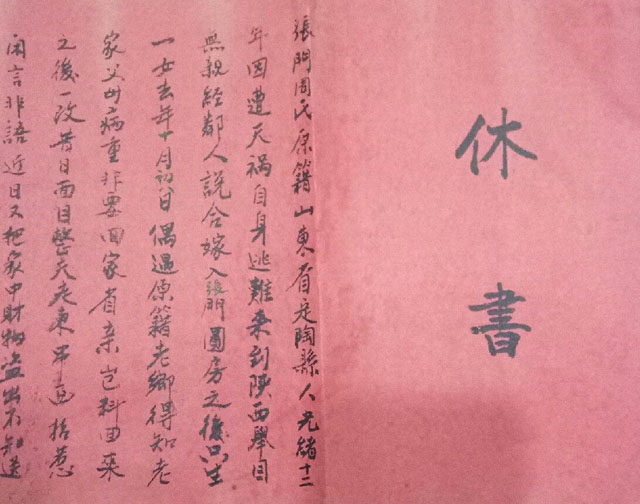 休書
張門周氏原籍山東省定陶縣人光緒十二
年因遭天禍自身逃難來到陝西舉目
無親經鄰人說合嫁入張門圓房之後只生
一女去年十月初八日偶遇原籍老鄉得知老
家父母病重非要回家省亲豈料回來
之後一改昔日面目整天走東串西招惹
閑言非語近日又把家中財物盜出不知送